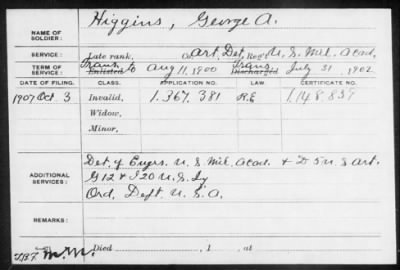 Higgins, George A.
NAME OF SOLDIER:
SERVICE: Late rank, Co. Art. Det, Reg't U. S. Mil. Acad.
TERM OF SERVICE: Trans. to Enlisted Aug 11, 1900 Trans. Discharged July 31, 1902
DATE OF FILING. CLASS. APPLICATION NO. LAW. CERTIFICATE NO.
1907 Oct. 3 Invalid, 1.367.381 R.E 1,148.839
Widow,
Minor,
ADDITIONAL SERVICES:
Det. of Engrs. U. S. Mil. Acad. & D 5 U. S. Art.
G 12 & I 20 U. S. Iy
Ord. Dept. U. S. A.
REMARKS:
M.M. Died , 1 , at